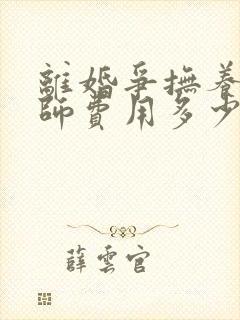 離婚爭撫養
師費用多少
薛雲官